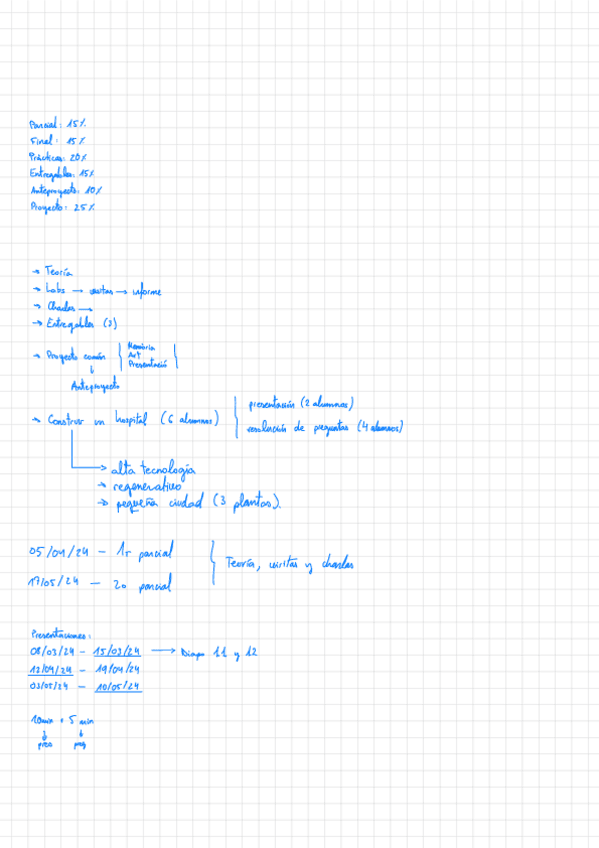 Parcial: 15%
Final: 15%
Prácticas: 20%
Entregables: 15%
Anteproyecto: 10%
Proyecto: 25%
→ Teoría
→ Labs → visitas → informe
→ Charlas →
→ Entregables (3)
→ Proyecto común
Memòria
Art
Presentació
Anteproyecto
→ Construir un hospital (6 alumnos)
presentación (2 alumnos)
resolución de preguntas (4 alumnos)
→ alta tecnología
→ regenerativo
→ pequeña ciudad (3 plantas).
05/04/24 – 1r parcial
17/05/24 – 2o parcial
Teoría, visitas y charlas
Presentaciones:
08/03/24 – 15/03/24 → Diapo 11 y 12
12/04/24 – 19/04/24
03/05/24 – 10/05/24
10min + 5 min
pres preg